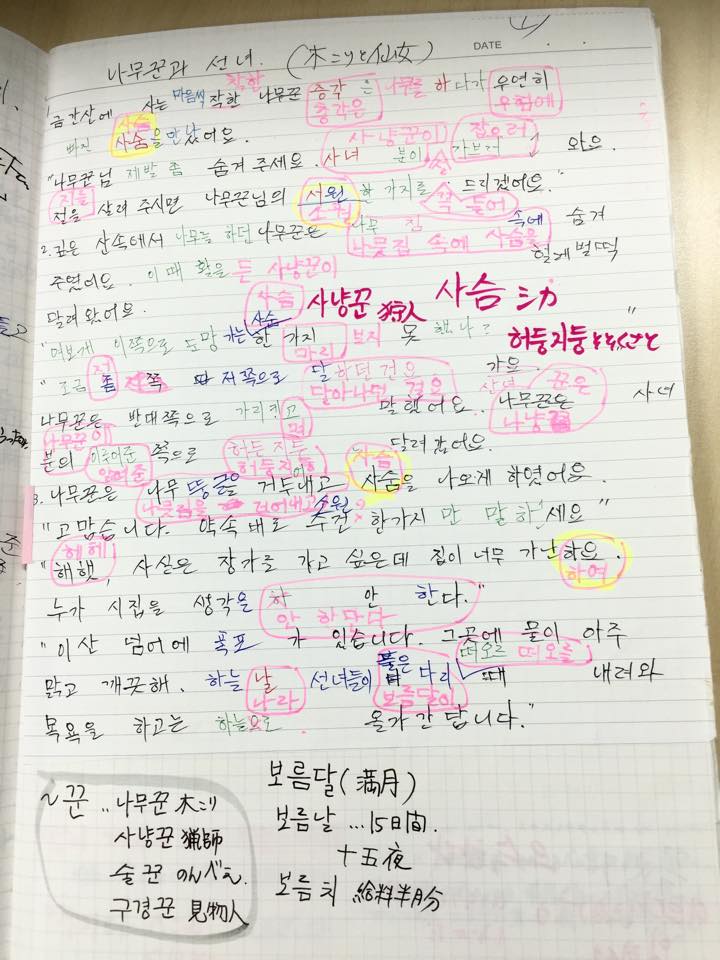 나무꾼과 선녀. (木こりと仙女)
DATE
착한
금강산에 사는 마음씩 작한 나무꾼 증각 은 나무를 하다가 우연히
총각은 우연에
빠진 사슴을 만났어요.
사냥꾼이 잡으러
"나무꾼님 제발 좀 숨겨 주세요. 사녀 분이 와요.
저를
절을 살려 주시면 나무꾼님의 서원 한 가지를 드리겠어요."
소원 꼭 들어
2. 깊은 산속에서 나무를 하던 나무꾼은 나무 집 속에 숨겨
나뭇집 속에 사슴을
주였어요. 이 때 활을 든 사냥꾼이 헐게벌떡
달려 왔어요.
사슴 사냥꾼 狩人 사슴 シカ
"여보게 이쪽으로 도망 가는 사슴 한 가지 보지 못 했나?"
마리 허둥지둥
"조금 좀 저쪽으로 달 하던건요 가요.
전 달아나던 걸요
나무꾼은 반대쪽으로 가리키고 말했어요. 나무꾼은 사녀
나무꾼이 며 사냥 꾼은
분의 이룻어준 쪽으로 허든지든 달려 갔어요.
알려준 허둥지둥
사슴
3. 나무꾼은 나무 뚱글을 거두내고 사숨을 나오게 하였어요.
소원
"고맙습니다. 약속 대로 수건 한가지 만 말하세요"
헤헤
"해햇, 사실은 장가를 가고 싶은데 집이 너무 가난하요.
하여
누가 시집을 생각을 하 안 한다."
안 한답니다
"이산 넘어에 폭포 가 있습니다. 그곳에 물이 아주
떠오르 떠오를
맑고 깨끗해. 하늘 날 선녀들이 다리 때 내려와
나라 보름달이
목욕을 하고는 하늘으로 올가 간 답니다."
~꾼 .. 나무꾼 木こり
사냥꾼 猟師
술꾼 のんべえ
구경꾼 見物人
보름달 (満月)
보름날 ... 15日間.
十五夜
보름치 給料半月分